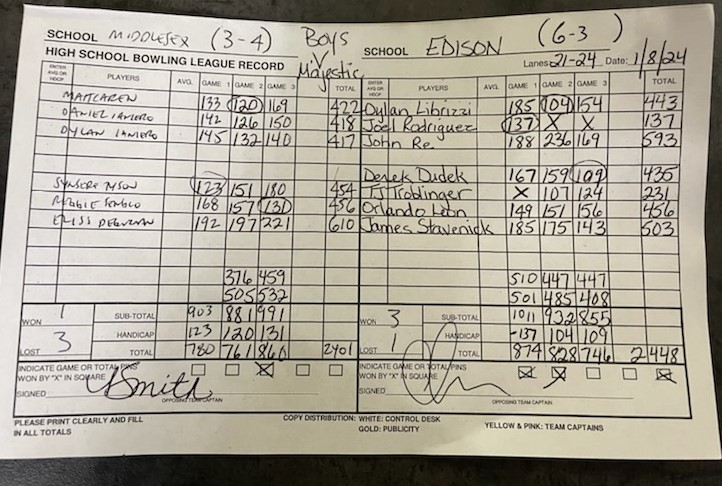 SCHOOL MIDDLESEX (3-4) BOYS SCHOOL EDISON (6-3)
HIGH SCHOOL BOWLING LEAGUE RECORD Majestic Lanes 21-24 Date: 1/8/24
ENTER AVG OR HDCP PLAYERS AVG. GAME 1 GAME 2 GAME 3 TOTAL ENTER AVG OR HDCP PLAYERS GAME 1 GAME 2 GAME 3 TOTAL
MATT CAREN 133 120 169 422 Dylan Librizzi 185 104 154 443
DANIEL IANIERO 142 126 150 418 Joel Rodriguez 137 X X 137
DYLAN IANIERO 145 132 140 417 John Re. 188 236 169 593
Derek Dudek 167 159 109 435
TYSON 123 151 180 454 TJ Troblinger X 107 124 231
168 157 131 456 Orlando León 149 151 156 456
192 197 221 610 James Stavenick 185 175 143 503
376 459 510 447 447
505 532 501 485 408
WON 1 SUB-TOTAL 903 881 991 WON 3 SUB-TOTAL 1011 932 855
HANDICAP 123 120 131 HANDICAP -137 104 109
LOST 3 TOTAL 780 761 860 2401 LOST 1 TOTAL 874 828 746 2448
INDICATE GAME OR TOTAL PINS WON BY "X" IN SQUARE X INDICATE GAME OR TOTAL PINS WON BY "X" IN SQUARE X X X
SIGNED Smith SIGNED
OPPOSING TEAM CAPTAIN OPPOSING TEAM CAPTAIN
PLEASE PRINT CLEARLY AND FILL IN ALL TOTALS
COPY DISTRIBUTION: WHITE: CONTROL DESK YELLOW & PINK: TEAM CAPTAINS
GOLD: PUBLICITY